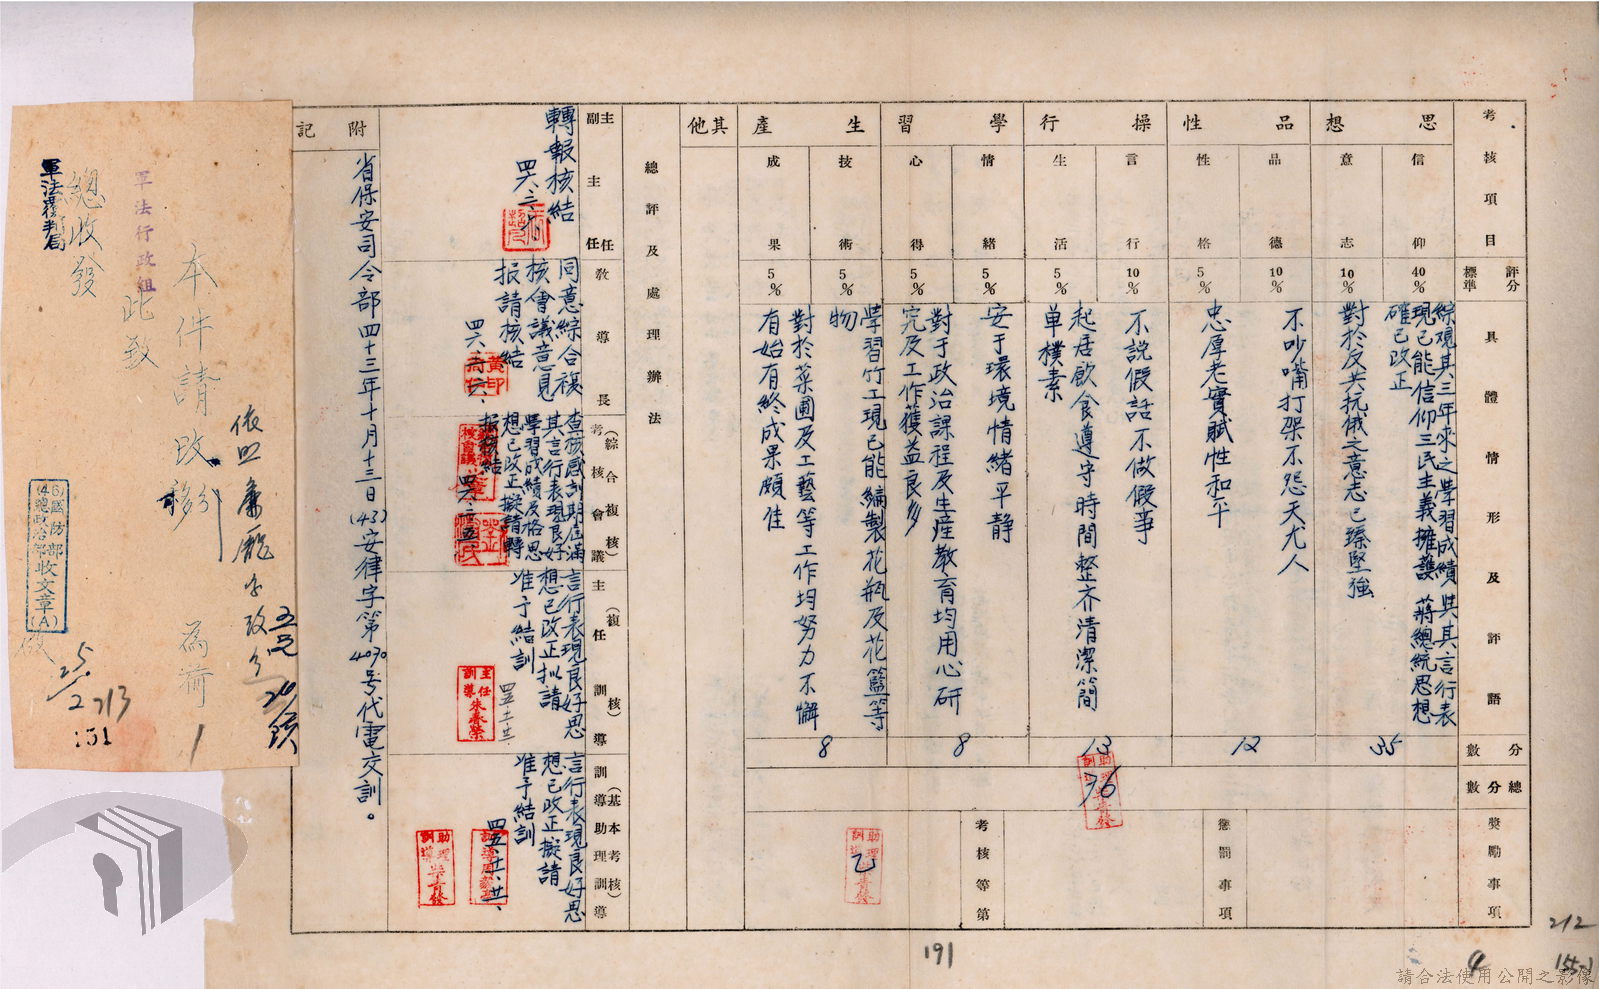 考核項目
評分標準
具體情形及評語
分數
總分數
獎勵事項
思想
信仰
40%
綜觀其三年來之學習成績與其言行表
現已能信仰三民主義擁護 蔣總統思想
確已改正
35
意志
10%
對於反共抗俄之意志已臻堅強
品性
品德
10%
不吵嘴打架不怨天尤人
12
性格
5%
忠厚老實賦性和平
懲罰事項
操行
言行
10%
不說假話不做假事
13
生活
5%
起居飲食遵守時間整齐清潔簡
单樸素
76
學習
情緒
5%
安于環境情緒平静
8
心得
5%
對于政治課程及生產教育均用心研
究及工作獲益良多
考核等第
乙
生產
技術
5%
學習竹工現已能編製花瓶及花籃等
物
8
成果
5%
對於菜圃及工藝等工作均努力不懈
有始有終成果頗佳
其他
總評及處理辦法
主任
副主任
轉報核結
教導長
同意綜合複
核會議意見
报請核結
(綜合複核)
考核會議
查核感訓期屆滿
其言行表現良好
學習成績及格思
想已改正擬請轉
报核結
(複核)
主任訓導
言行表現良好思
想已改正拟請
准予結訓
主任訓導朱春榮
(基本考核)
訓導助理訓導
言行表現良好思
想已改正擬請
准予結訓
附記
省保安司令部四十三年十月十三日(43)安律字第4070号代電交訓。
本件請改
移
為荷
此致
軍法行政組
總收發
軍法覆判局
(46)國防部
總政治部收文章(A)
25/2
213
151
191
212
155-1
請合法使用公開之影像